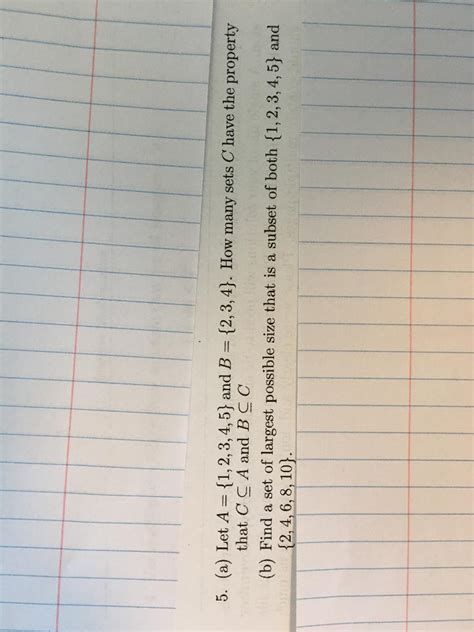 5. (a) Let A = {1, 2, 3, 4, 5} and B = {2, 3, 4}. How many sets C have the property
that C ⊆ A and B ⊆ C
(b) Find a set of largest possible size that is a subset of both {1, 2, 3, 4, 5} and
{2, 4, 6, 8, 10}.